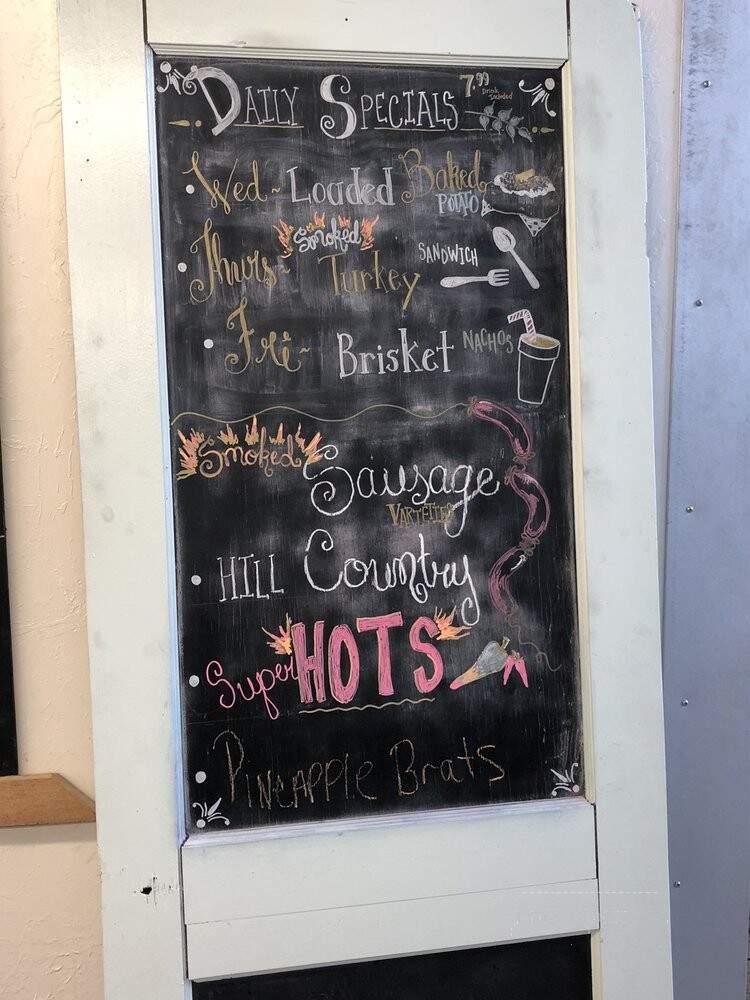 Daily Specials 7.99 Drink Included
Wed~ Loaded Baked Potato
Thurs~ Smoked Turkey Sandwich
Fri~ Brisket Nachos
Smoked Sausage
Varieties
Hill Country
Super HOTS
Pineapple Brats